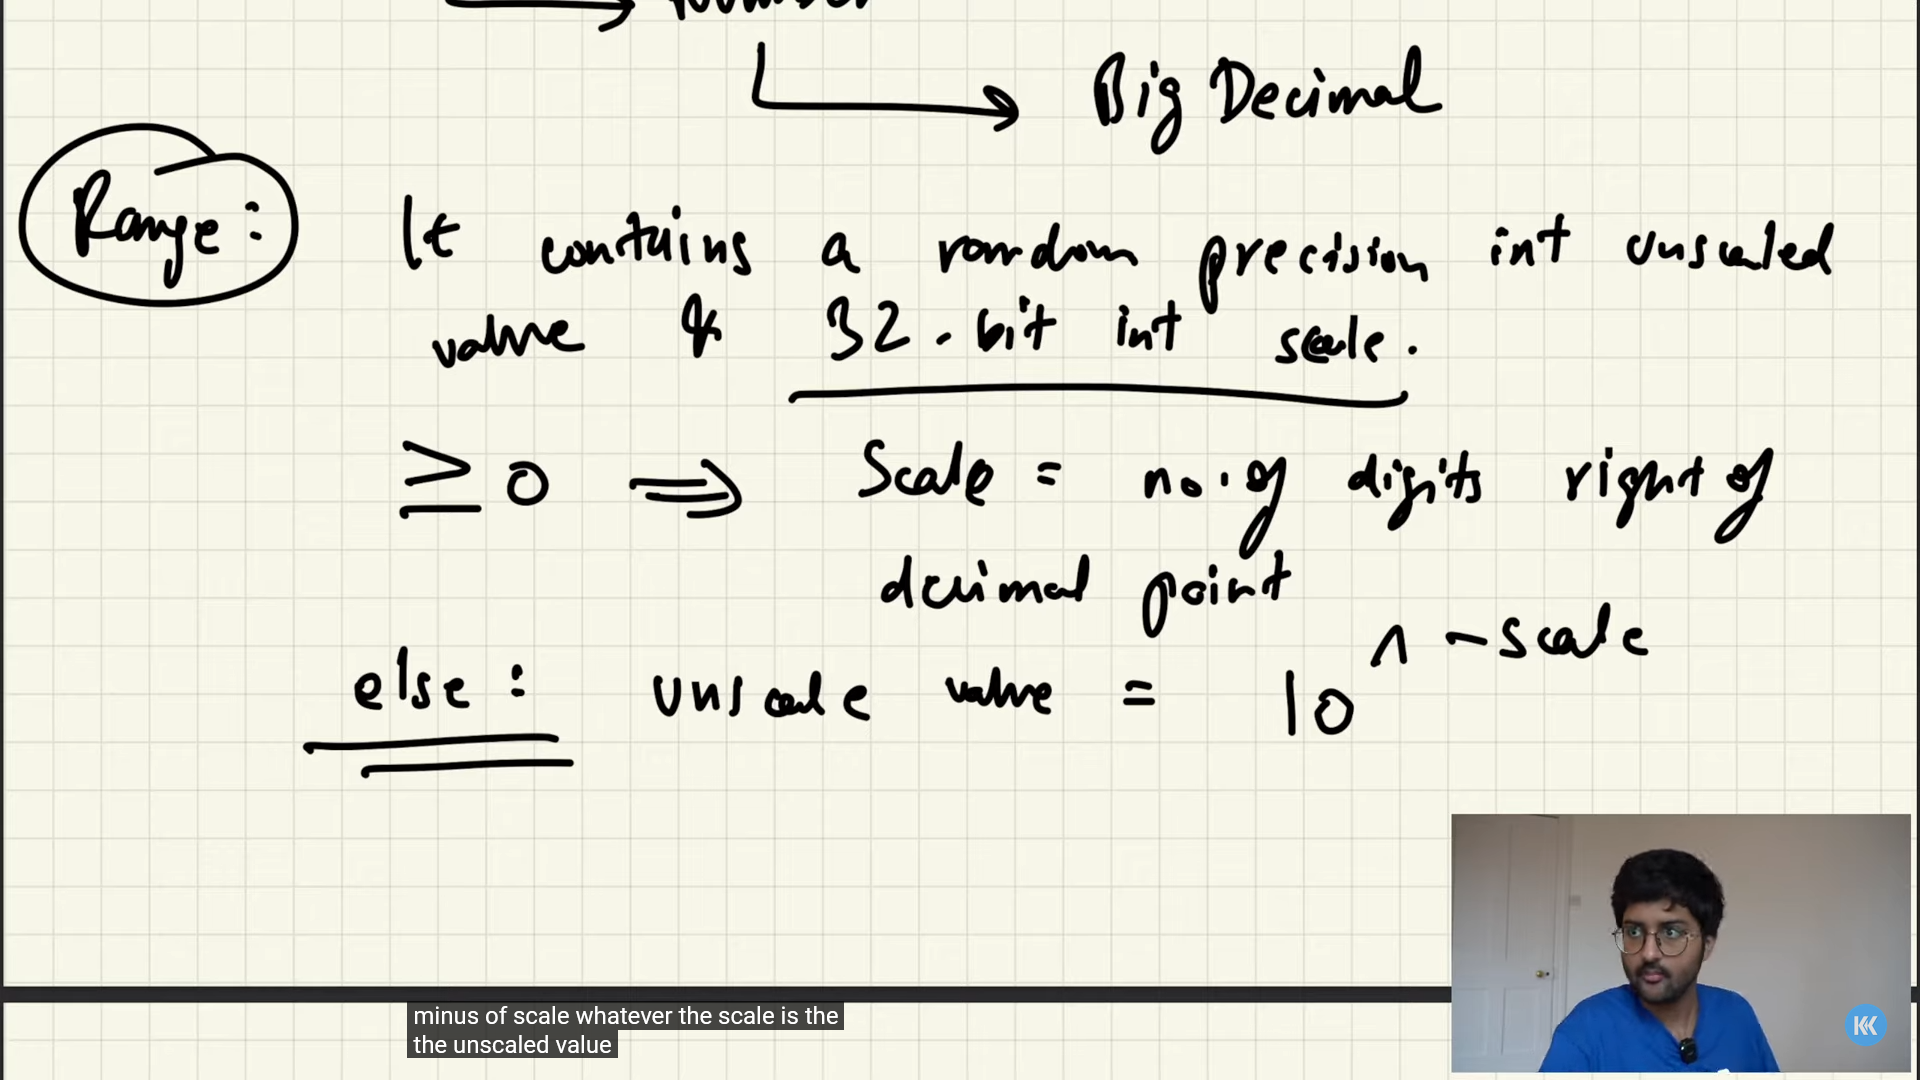 Big Decimal
Range:
It contains a random precision int unscaled
value & 32-bit int scale.
≥ 0 ⇒ Scale = no. of digits right of
decimal point
else: unscale value = 10 ^ -scale
minus of scale whatever the scale is the
the unscaled value